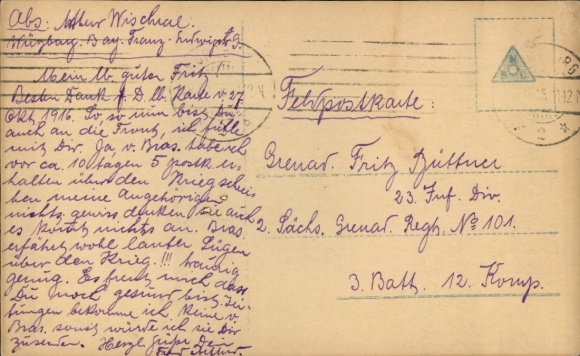 Abs: Artur Wischral.
Würzburg. Bay. Franz-Ludwigstr 9.
Mein lb. guter Fritz!
Besten Dank f. D. lb. Karte v. 27
Okt. 1916. So, so nun bist Du
auch an die Front, ich fühle
mit Dir. Ja, v. Bras. habe ich
vor ca. 10 tagen 5 postk. er-
halten über den Krieg schrei-
ben meine angehörigen
nichts, gewiss denken sie auch
es kommt nichts an. Bras.
erfährt wohl lauter Lügen
über den Krieg!!! traurig
genug. Es freut mich dass
Du noch gesund bist. Zei-
tungen bekomme ich keine v.
Bras. sonst würde ich sie Dir
zusenden. Herzl. Grüße Dein
Frd. Artur.
Feldpostkarte:
Grenad. Fritz Büttner
23. Inf. Div.
2. Sächs. Grenad. Regt. No 101.
3. Batl. 12. Komp.